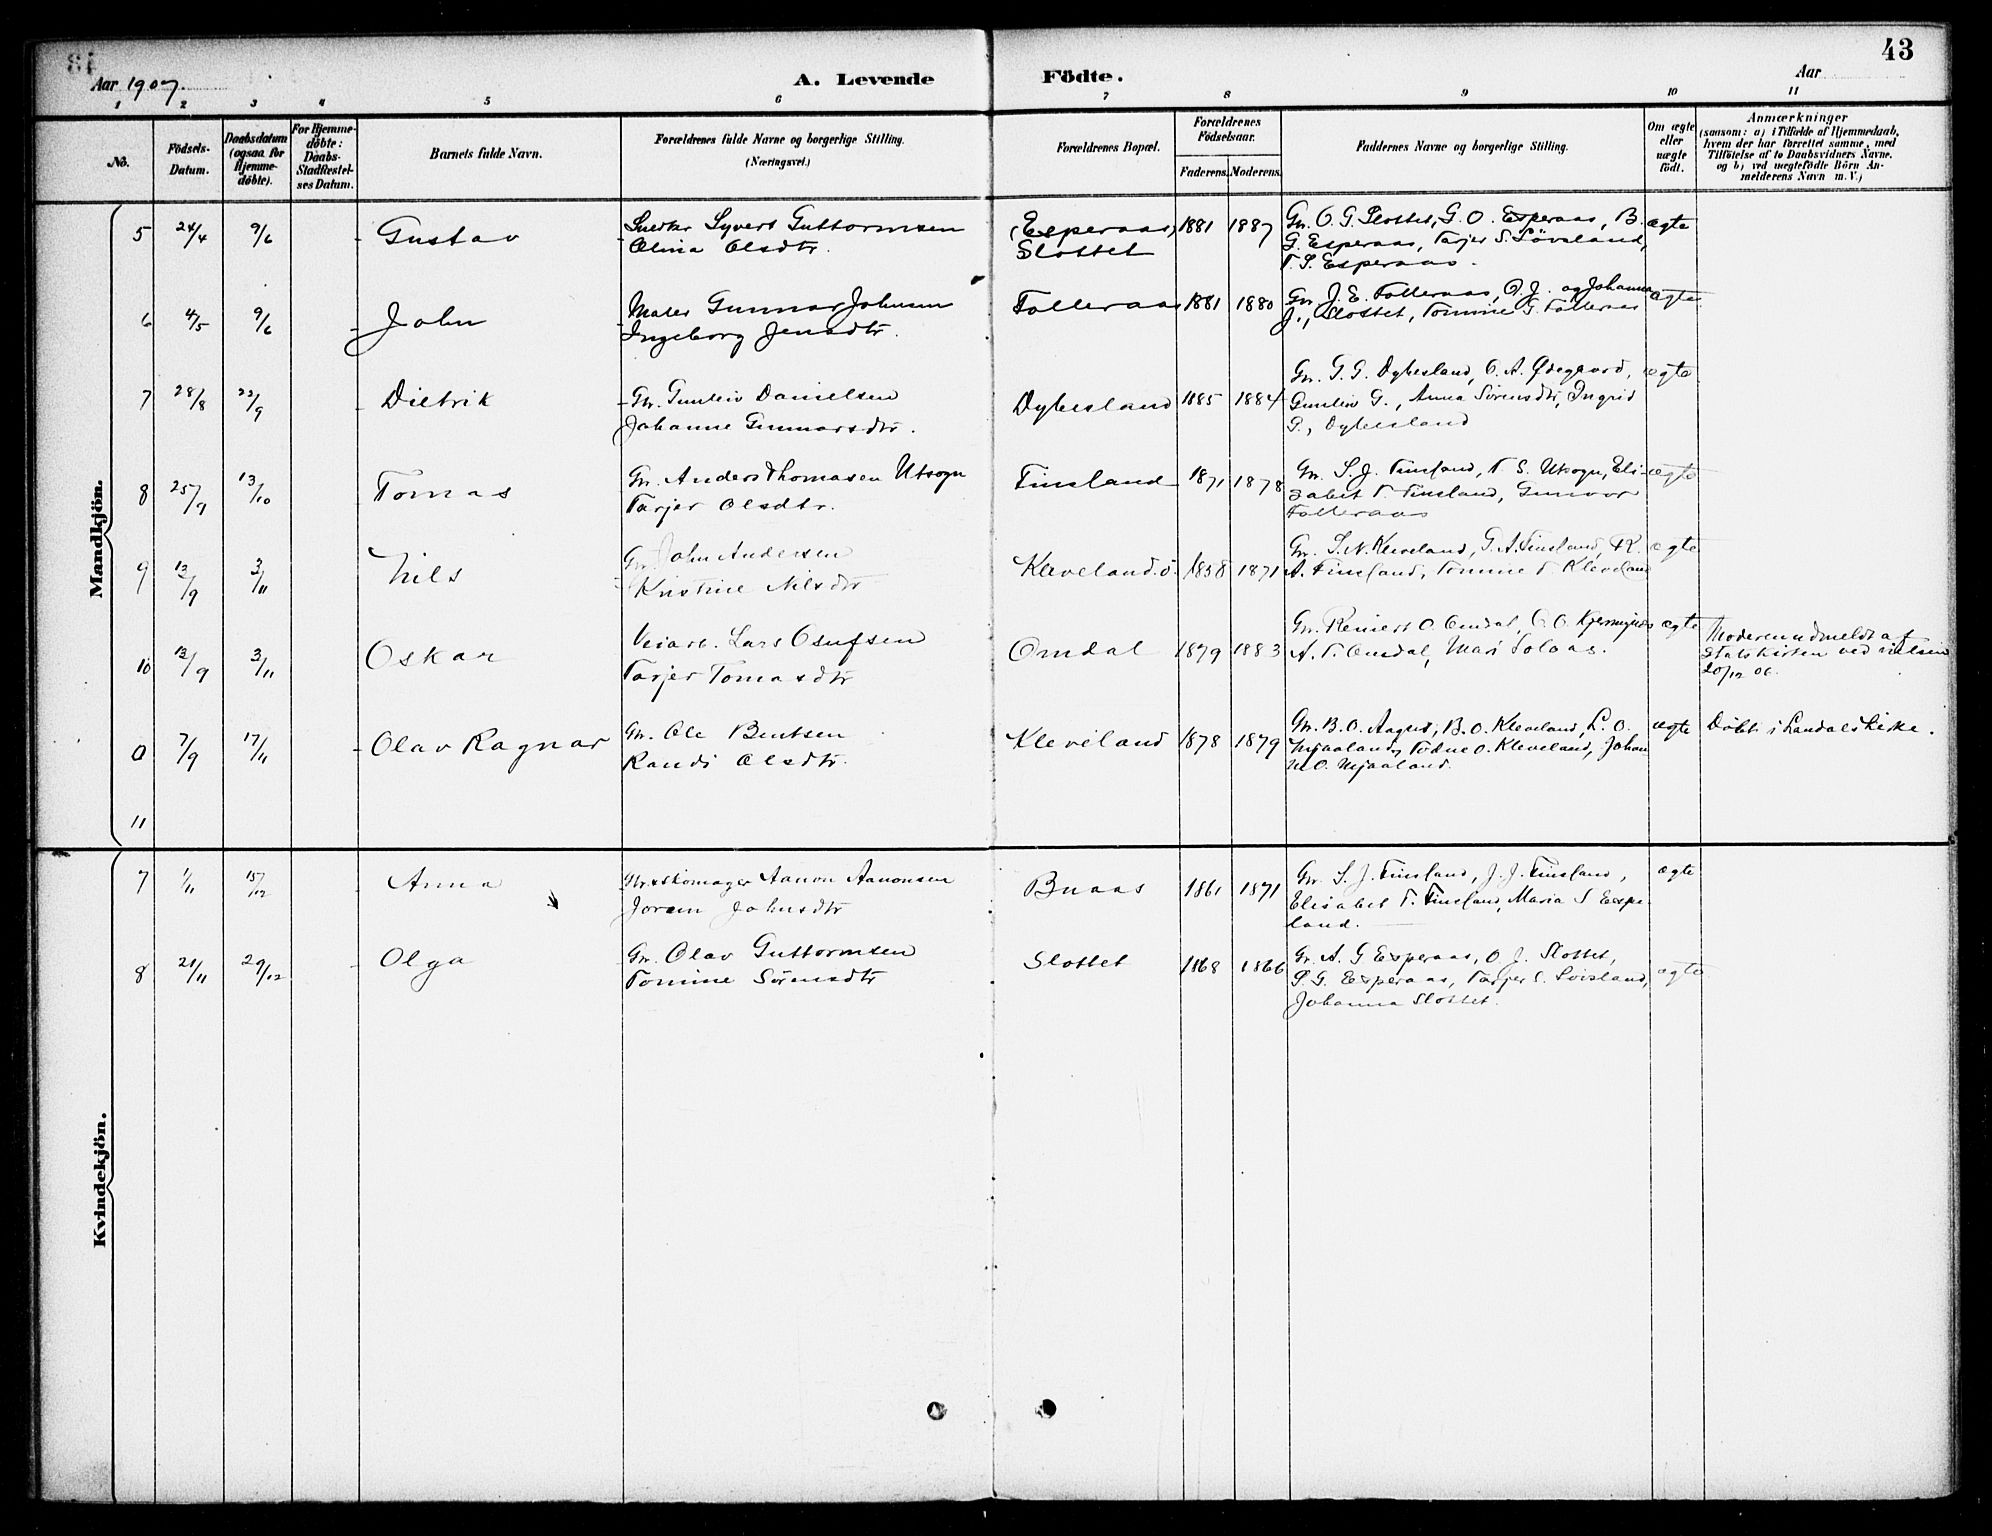 43
Aar 1907.
A. Levende Födte.
Aar
1 2 3 4 5 6 7 8 9 10 11
No.
Födsels-
Datum.
Daabsdatum
(ogsaa for
Hjemme-
döbte).
For Hjemme-
döbte:
Daabs-
Stadfæstel-
ses Datum.
Barnets fulde Navn.
Forældrenes fulde Navne og borgerlige Stilling.
(Næringsvei.)
Forældrenes Bopæl.
Forældrenes
Födselsaar.
Faderens. Moderens.
Faddernes Navne og borgerlige Stilling.
Om ægte
eller
uægte
födt.
Anmærkninger
(saasom: a) i Tilfælde af Hjemmedaab,
hvem der har forrettet samme, med
Tilföielse af to Daabsvidners Navne,
og b) ved uægtefödte Börn An-
melderens Navn m. V.)
Mandkjön.
5 24/4 9/6 Gustav
Snedker Syvert Guttormsen
Olina Olsdtr.
(Esperaas)
Slottet
1881 1887
Gr. O. G. Slottet, G. O. Esperaas, B.
G. Esperaas, Tarjer S. Lövsland,
T. S. Esperaas.
ægte
6 4/5 9/6 John
Maler Gunnar Johnsen
Ingeborg Jensdtr.
Folleraas
1881 1880
Gr. J. E. Folleraas, O. J. og Johanna
J., Slottet, Tomine G. Folleraas
ægte
7 28/8 22/9 Dietrik
Gr. Gunleiv Danielsen
Johanne Gunnarsdtr.
Dybesland
1885 1884
Gr. G. G. Dybesland, O. A. Ødegaard,
Gunleiv G., Anna Sörensdtr, Ingrid
G., Dybesland
ægte
8 25/9 13/10 Tomas
Gr. Anders Thomasen Utsogn
Tarjer Olsdtr.
Finsland
1871 1878
Gr. S. J. Finsland, T. S. Utsogn, Eli-
sabet T. Finsland, Gunvor
Folleraas
ægte
9 12/9 3/11 Nils
Gr. John Andersen
Kristine Nilsdtr
Kleveland. ö.
1858 1871
Gr. S. N. Kleveland, G. A. Finsland, K.
A. Finsland, Tomine T. Kleveland
ægte
10 13/9 3/11 Oskar
Veiarb. Lars Osufsen
Tarjer Tomasdtr
Omdal
1879 1883
Gr. Reinert O. Omdal, O. O.
A. T. Omdal, Mari Solaas.
ægte
Moderen udmeldt af
Statskirken ved
20/12 06.
0 7/9 17/11 Olav Ragnar
Gr. Ole Bentsen
Randi Olsdtr.
Kleveland
1878 1879
Gr. B. O. Aagned, B. O. Kleveland, L. O.
Mjaaland, Todne O. Kleveland, Johan
M. O. Mjaaland.
ægte
Döbt i Landals Kirke.
11
Kvindekjön.
7 1/11 15/12 Anna
Gr. & Skomager Aanon Aanonsen
Joren Johnsdtr
Buaas
1861 1871
Gr. S. J. Finsland, J. J. Finsland,
Elisabet T. Finsland, Maria S. Eespe-
land.
ægte
8 21/11 29/12 Olga
Gr. Olav Guttormsen
Tomine Sörensdtr
Slottet
1868 1866
Gr. A. G. Esperaas, O. J. Slottet,
G. G. Esperaas, Tarjer S. Lövsland,
Johanna Slottet.
ægte